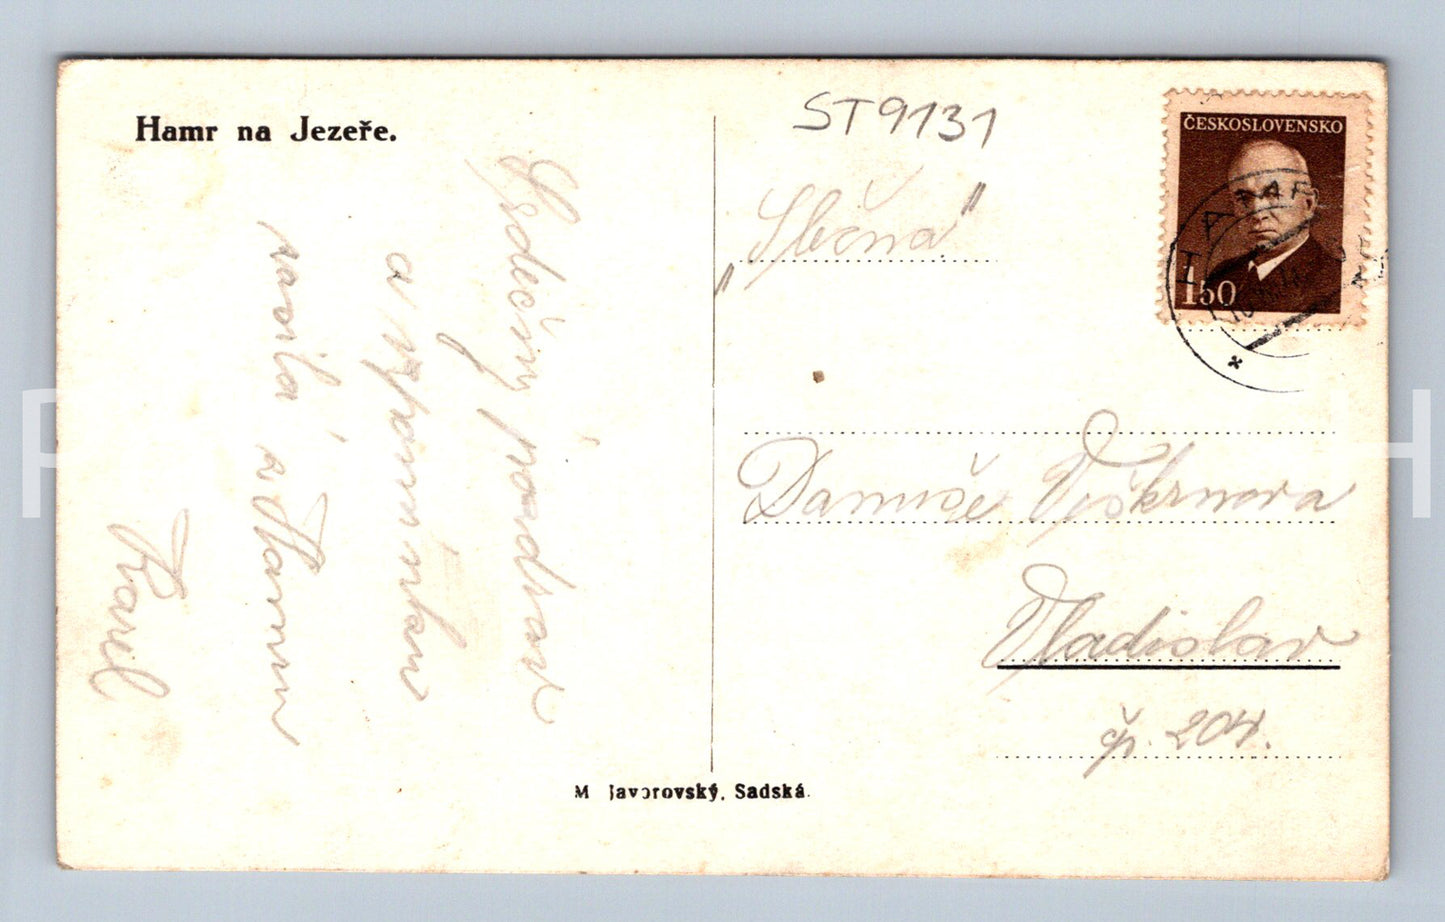 Hamr na Jezeře.
Srdečný pozdrav
a vzpomínku
zasílá z Hamru
Karel
ST9131
"Slečna"
ČESKOSLOVENSKO
1 50
Danuše Viškrnova
Vladislav
čp. 204.
M Javorovský, Sadská.